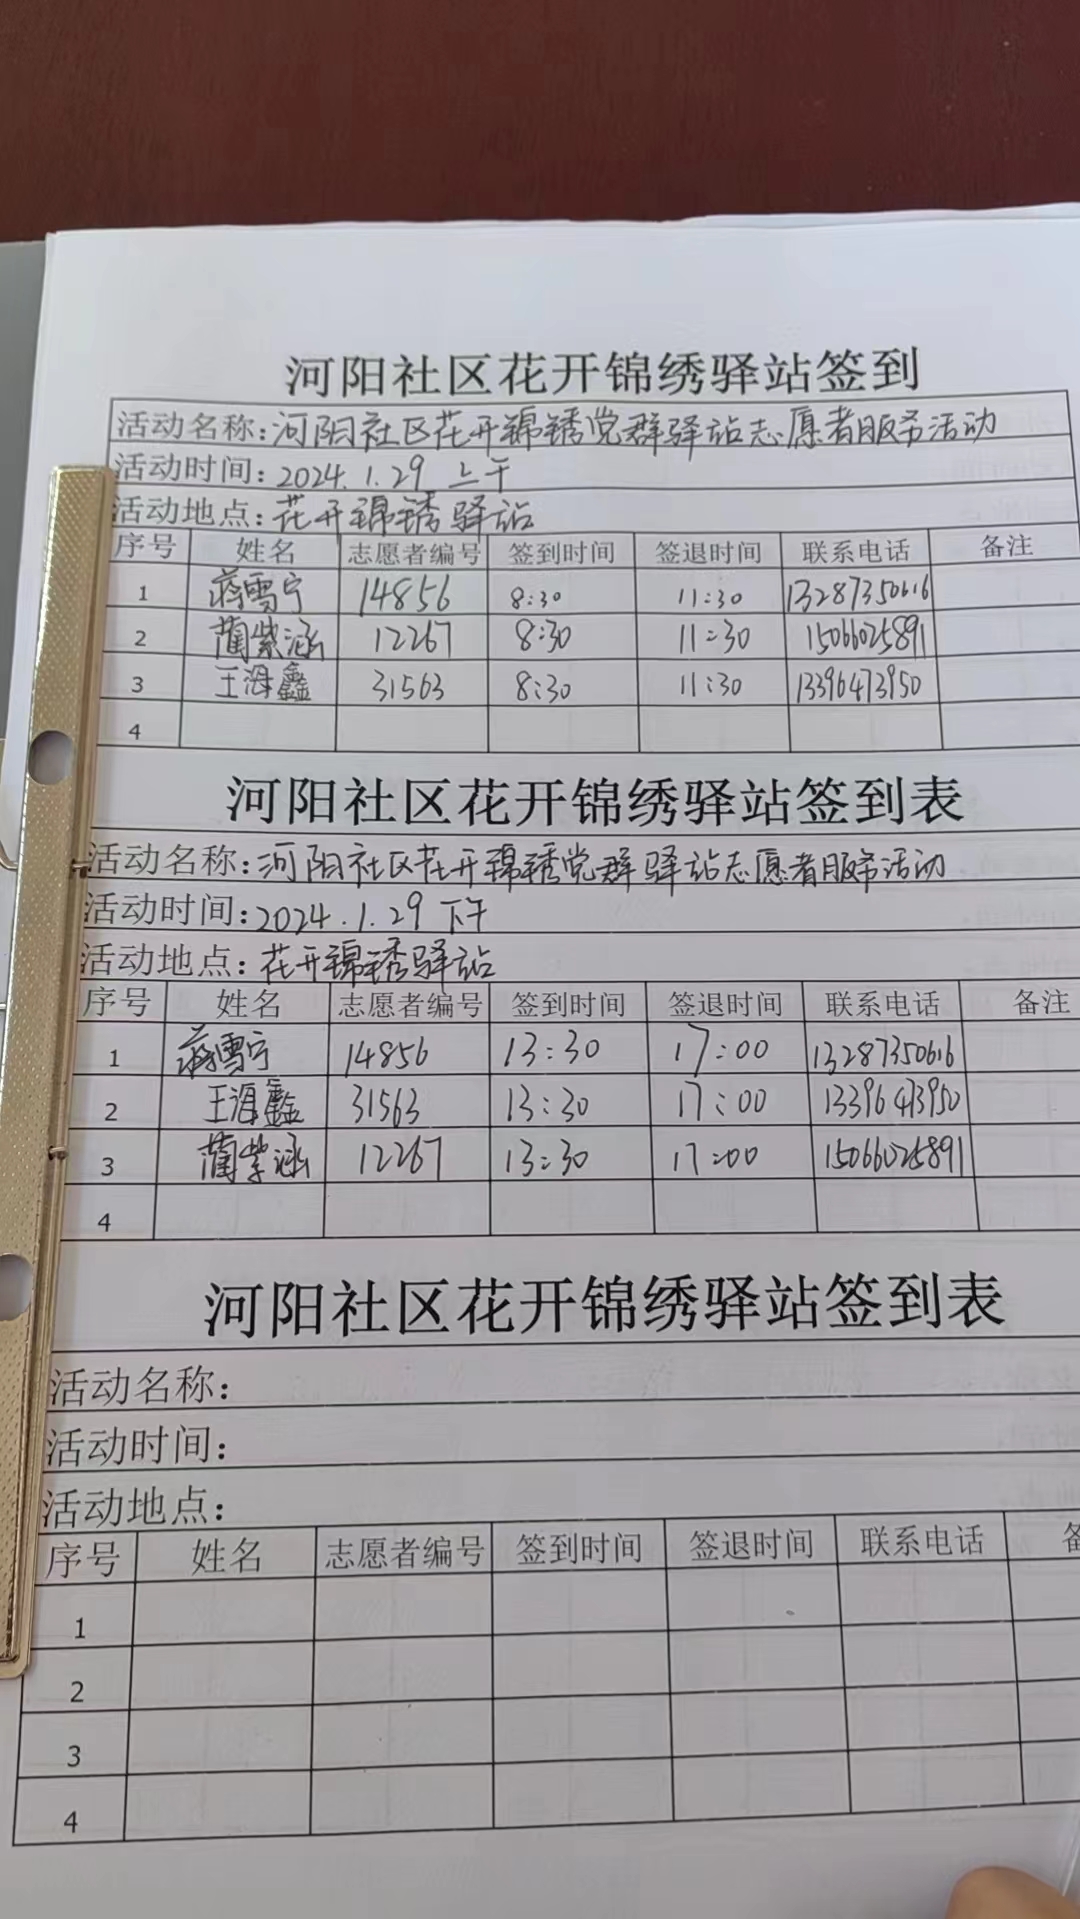 河阳社区花开锦绣驿站签到
活动名称:河阳社区花开锦绣党群驿站志愿者服务活动
活动时间:2024.1.29 上午
活动地点:花开锦绣驿站
序号 姓名 志愿者编号 签到时间 签退时间 联系电话 备注
1 蒋雪宁 14856 8:30 11:30 13287350616
2 蔺紫涵 12267 8:30 11:30 15066025891
3 王海鑫 31563 8:30 11:30 13396473950
4
河阳社区花开锦绣驿站签到表
活动名称:河阳社区花开锦绣党群驿站志愿者服务活动
活动时间:2024.1.29 下午
活动地点:花开锦绣驿站
序号 姓名 志愿者编号 签到时间 签退时间 联系电话 备注
1 蒋雪宁 14856 13:30 17:00 13287350616
2 王海鑫 31563 13:30 17:00 13396473950
3 蔺紫涵 12267 13:30 17:00 15066025891
4
河阳社区花开锦绣驿站签到表
活动名称:
活动时间:
活动地点:
序号 姓名 志愿者编号 签到时间 签退时间 联系电话
1
2
3
4